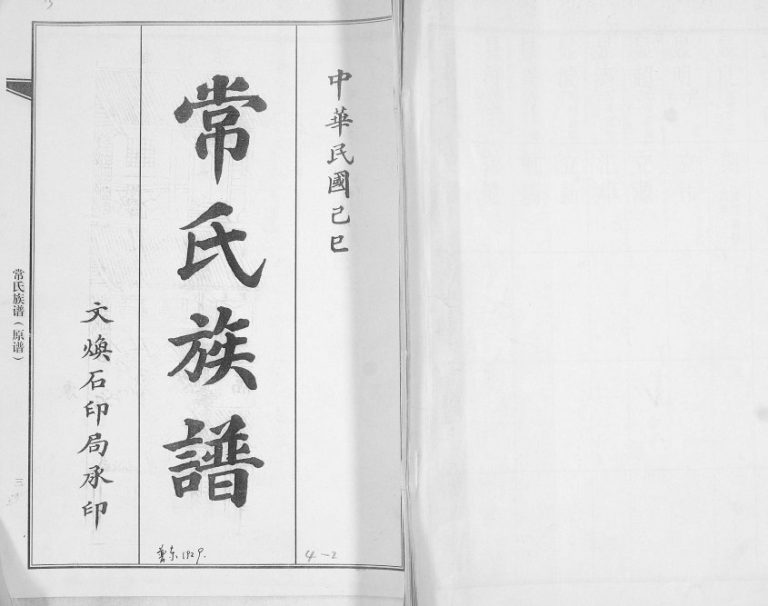 中華民國己巳
常氏族譜
文煥石印局承印
常氏族谱（原谱）
三
1929.
4-2